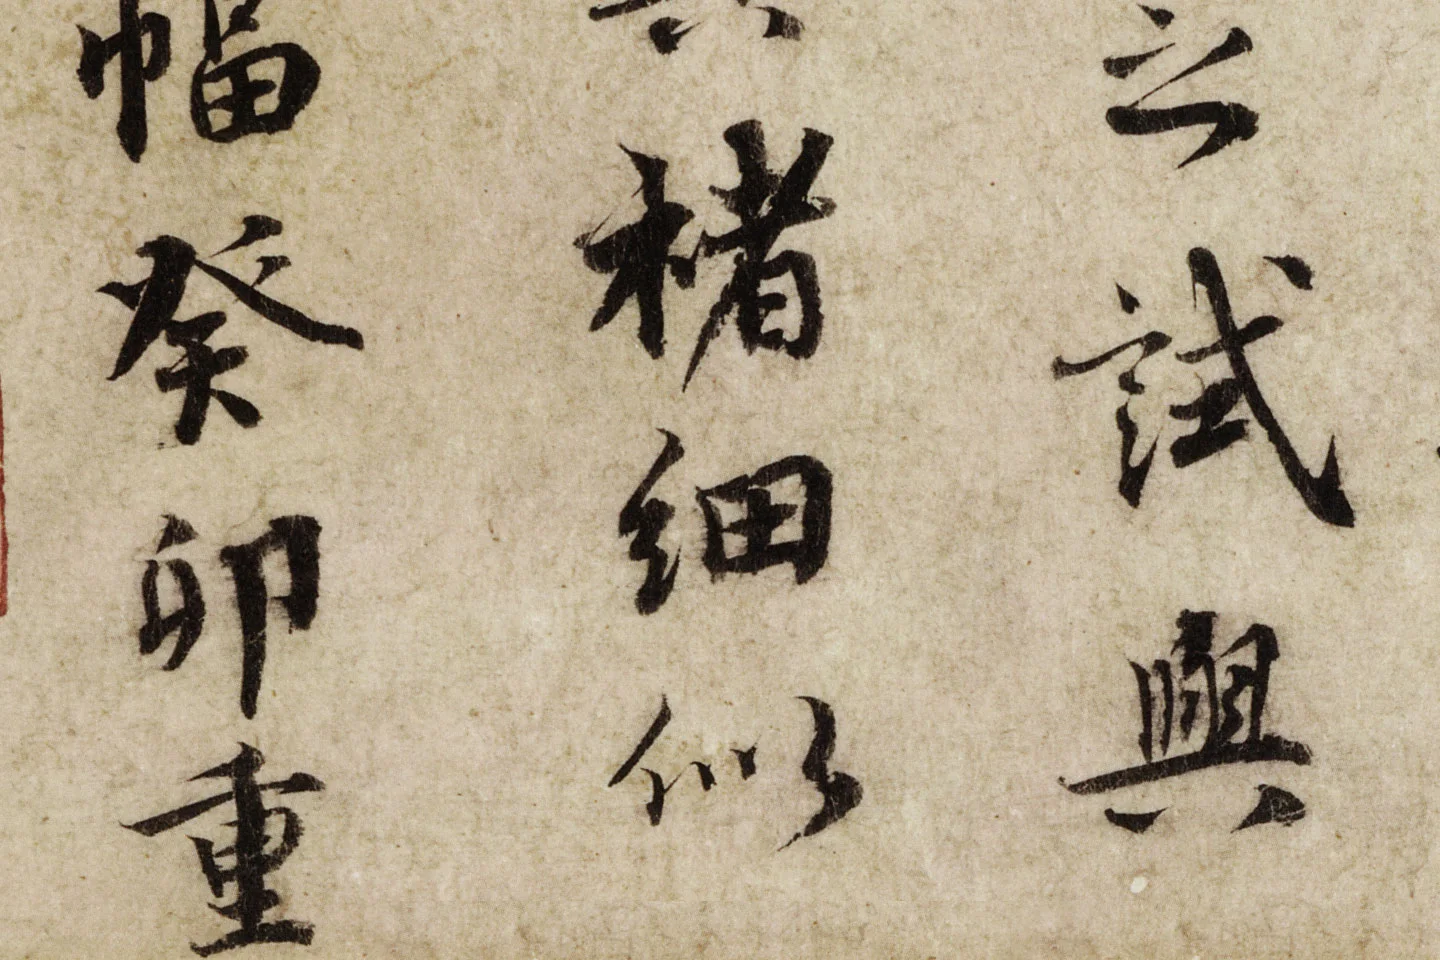 之試興
楮細似
幅癸卯重